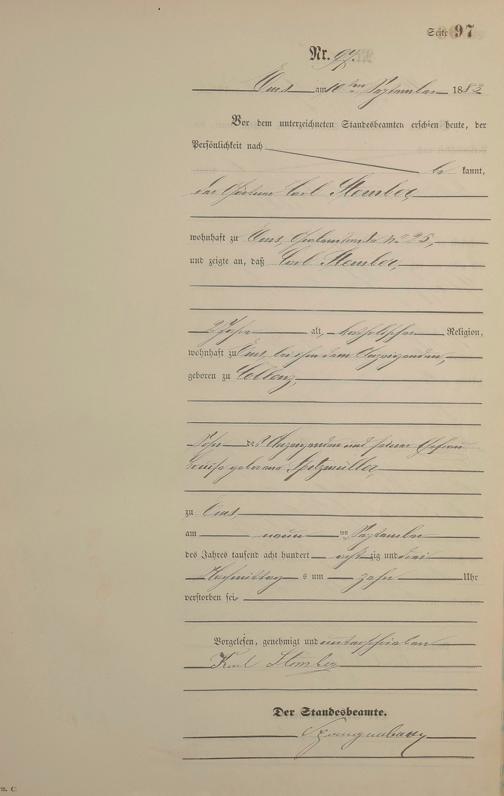 Seite 97
Nr. 97.
Ems am 10ten September 1883
Vor dem unterzeichneten Standesbeamten erschien heute, der
Persönlichkeit nach
be kannt,
der Carl Stemler,
wohnhaft zu Ems, No 25,
und zeigte an, daß Carl Stemler,
2 Jahre alt, katholischer Religion,
wohnhaft zu Ems, bei dem Anzeigenden,
geboren zu Coblenz,
Sohn des Anzeigenden und seiner Ehefrau
geborene
zu Ems,
am neun ten September
des Jahres tausend acht hundert acht zig und drei
Nachmittag s um zehn Uhr
verstorben sei.
Vorgelesen, genehmigt und unterschrieben
Karl Stemler
Der Standesbeamte.